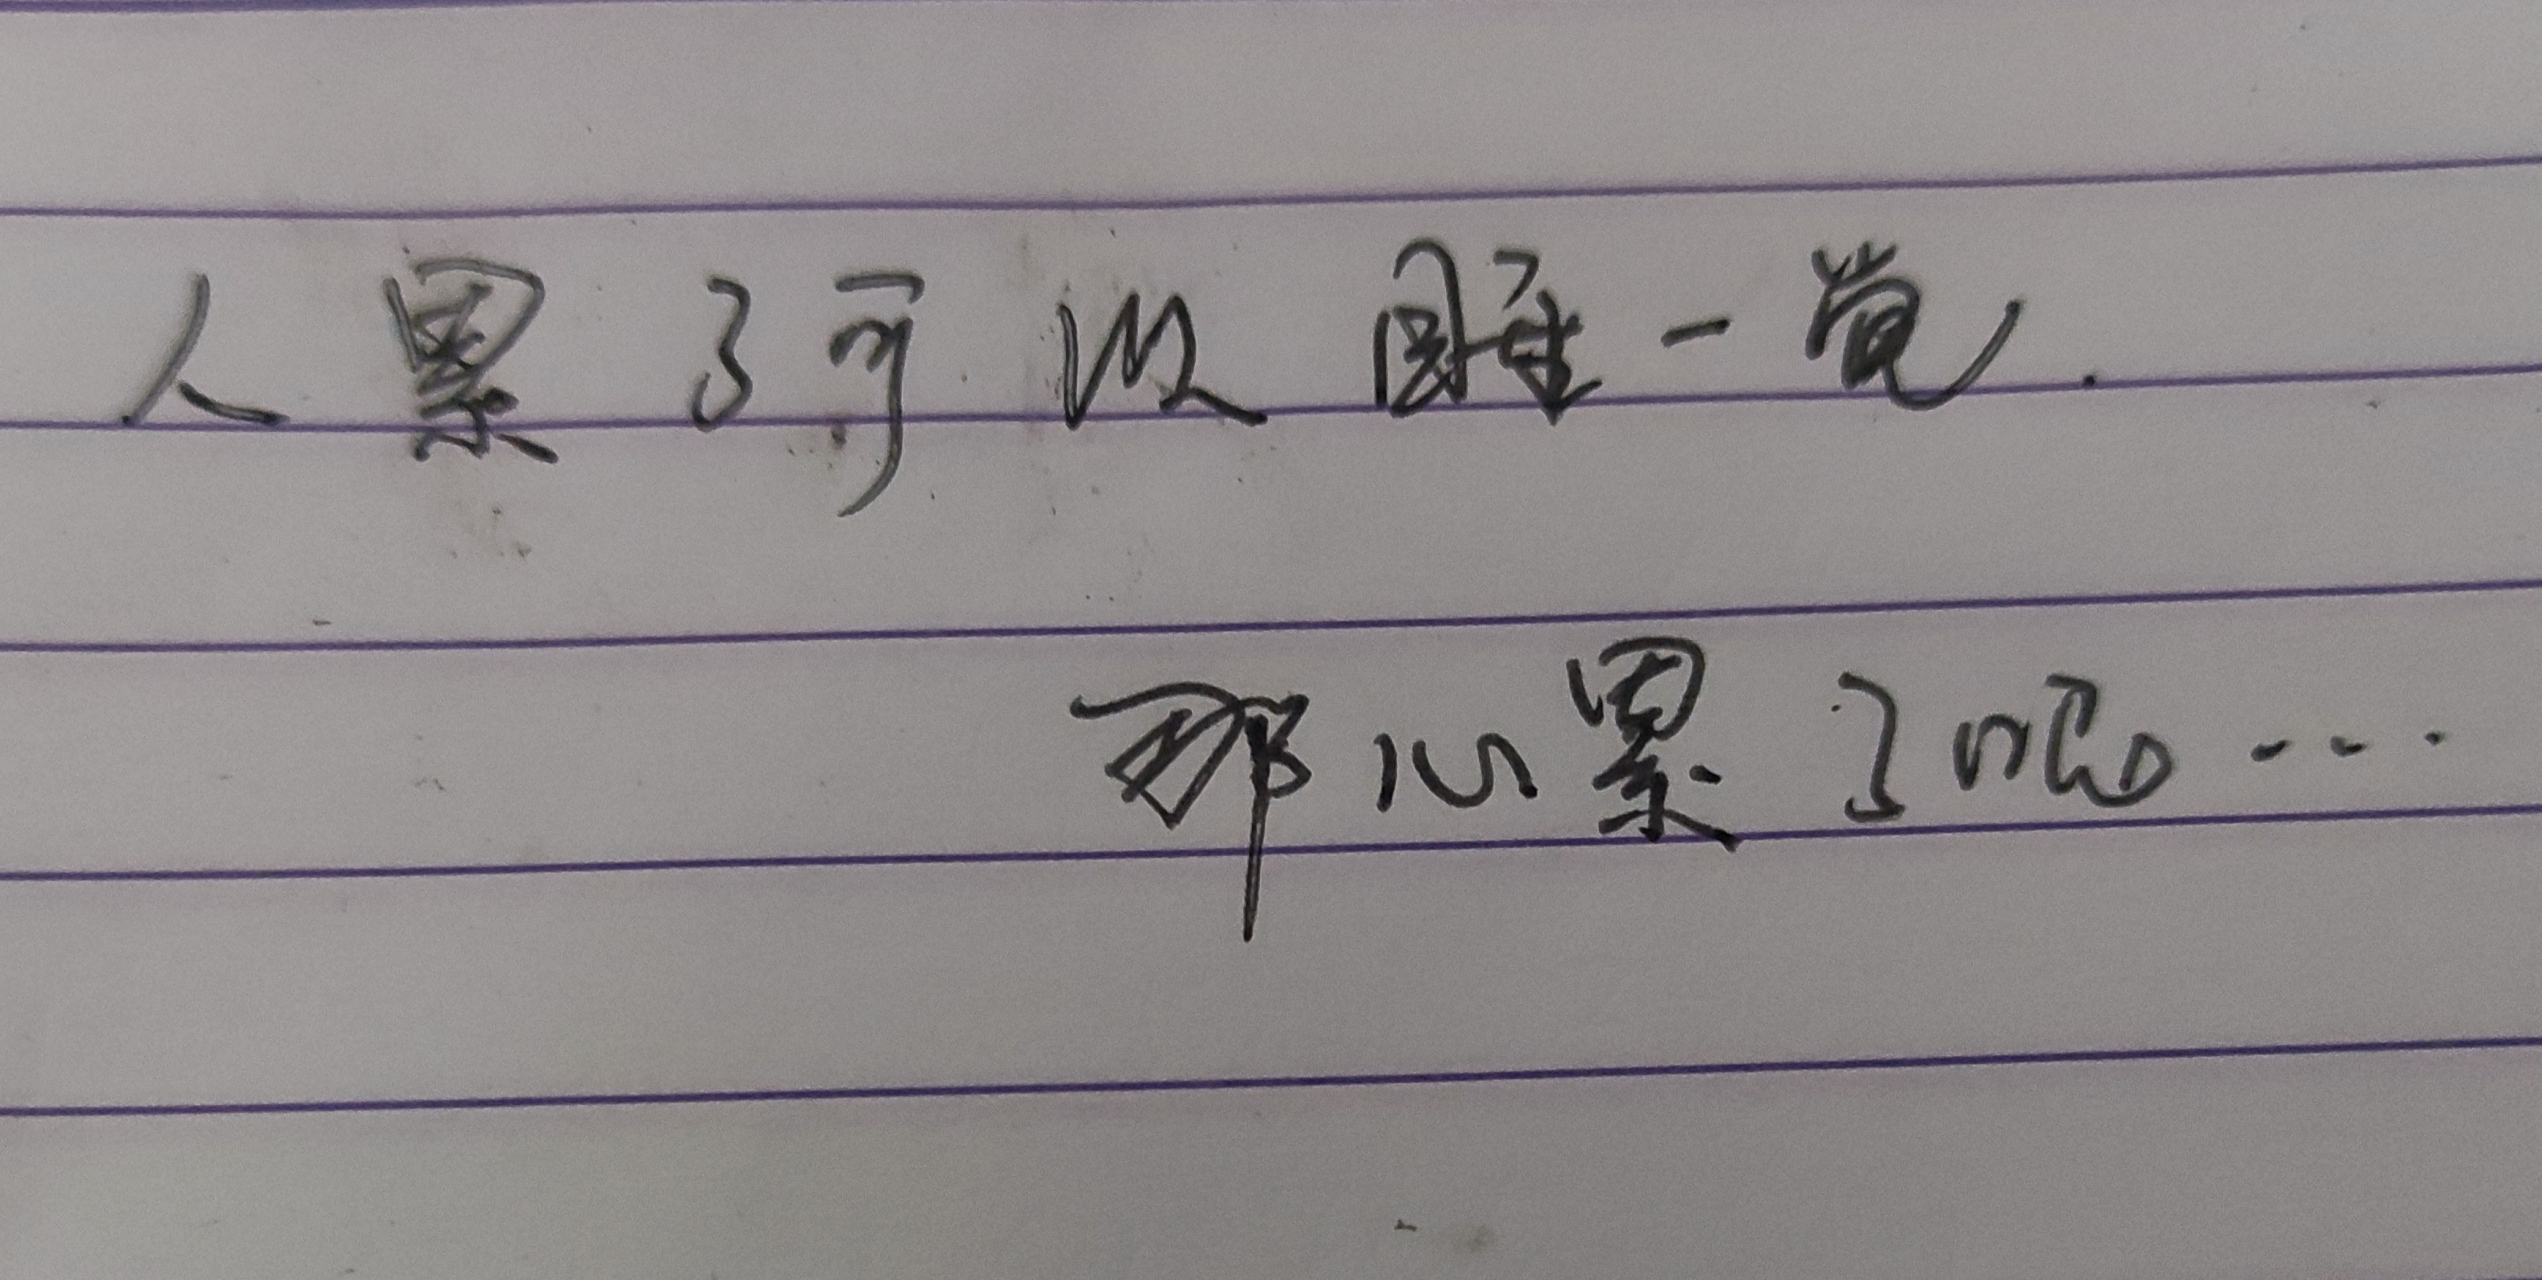 人累了可以睡一觉.
那心累了呢····